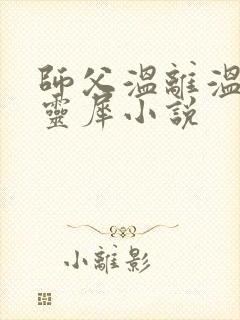 師父溫離溫
靈犀小說
小離影